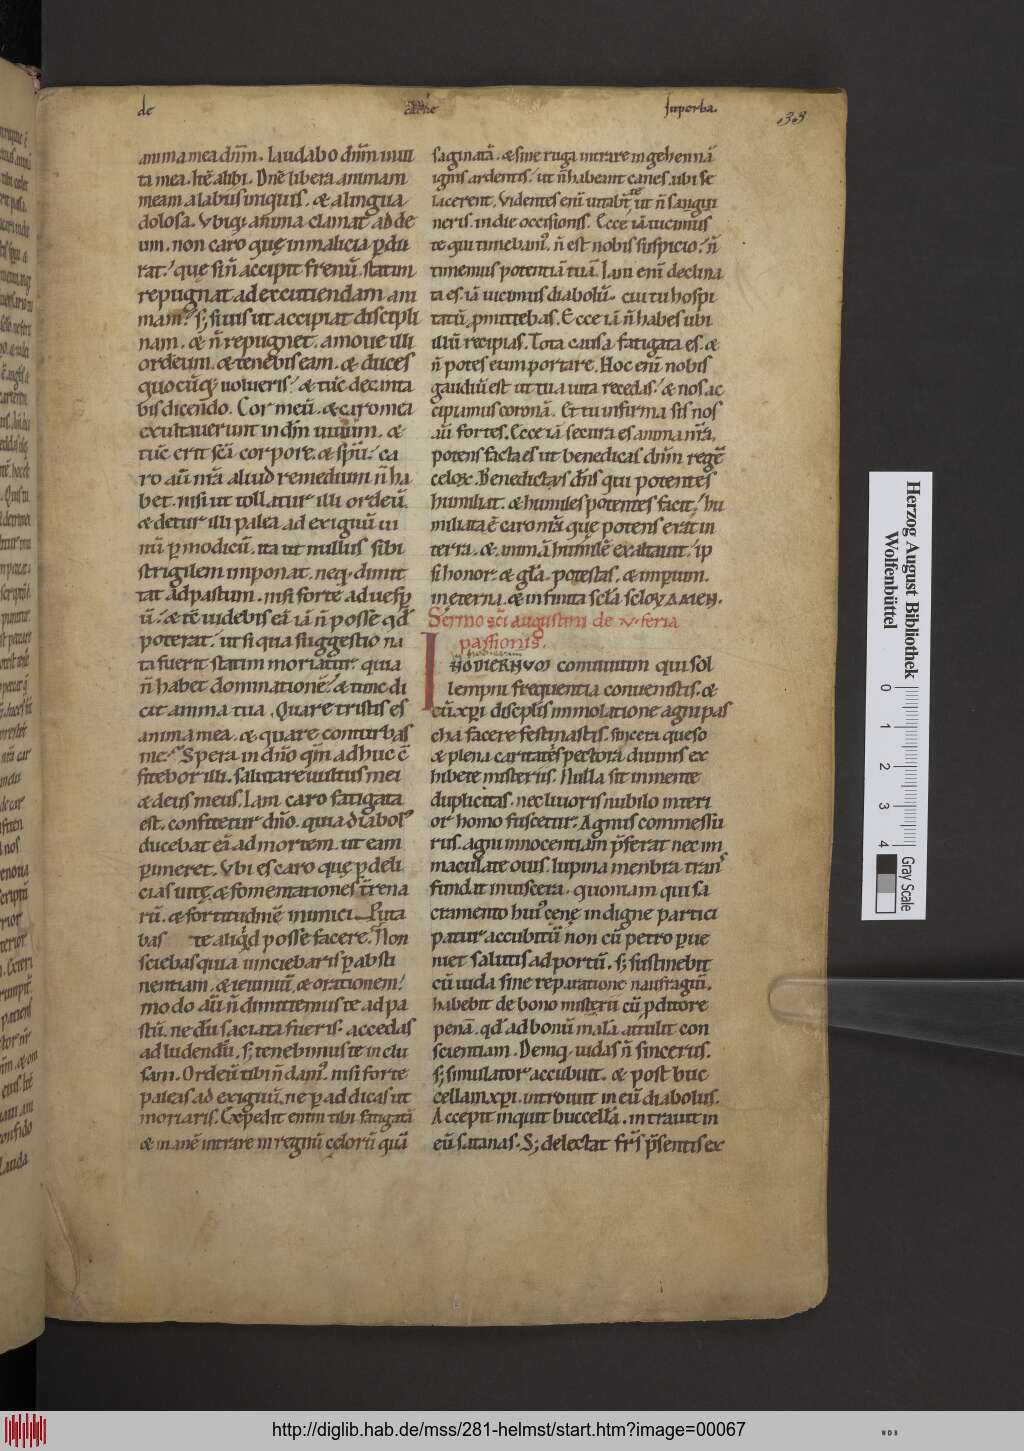 de carne superba.
33
anima mea dn̄m. laudabo dn̄m in ui
ta mea. Itē alibi. Dn̄e libera animam
meam a labiis iniquis. & a lingua
dolosa. Vbiq; anima clamat ad de
um. non caro quę in malicia ꝑdu
rat. que si n̄ accipit frenū. statim
repugnat ad excutiendam ani
mam. s; si uis ut accipiat discipli
nam. & n̄ repugnet. amoue illi
ordeum. & tenebis eam. & duces
quocūq; uolueris. & tūc decanta
bis dicendo. Cor meū. & caro mea
exultauerunt in dm̄ uiuum. &
tūc erit scā corpore. & spū. ca
ro aū nr̄a aliud remedium n̄ ha
bet. nisi ut tollatur illi ordeū.
& detur illi palea. ad exiguū ui
nū ꝑmodicū. ita ut nullus sibi
strigilem imponat. neq; dimit
tat ad pastum. nisi forte ad uesꝑ
ū. & tē uidebis eā iā n̄ posse qd̄
poterat. ut si qua suggestio na
ta fuerit statim moriatur. quia
n̄ habet dominationē. & tunc di
cit anima tua. Quare tristis es
anima mea. & quare conturbas
me. Spera in dn̄o qm̄ adhuc c̄
fitebor illi. salutare uultus mei
& deus meus. Iam caro fatigata
est. confitetur dn̄o. quia diabol'
ducebat eā ad mortem. ut eam
ꝑimeret. Vbi es caro quę ꝑ deli
cias uitę. & fomentationes t̄rena
rū. & fortitudinē inimici. Puta
bas te aliqd posse facere. Non
sciebas quia uinciebaris ꝑ absti
nentiam. & ieiuniū. & orationem.
modo aū n̄ dimittemus te ad pa
stū. ne dū saciata fueris. accedas
ad ludendū. s; tenebimus te inclu
sam. Ordeū tibi n̄ dam'. nisi forte
paleas ad exiguū. ne ꝑ ad dicas ut
moriaris. Expedit enim tibi fatigatā
& inanē intrare in regnū celorū quā
saginatā. & sine ruga intrare in gehennā
ignis ardentis. ut n̄ habeant canes. ubi se
iacerent. Videntes enī uitabt te ut n̄ sangui
neris. in die occisionis. Ecce iā uicimus
te qui timebam'. n̄ est nobis suspicio. n̄
timemus potentiā tuā. Iam enī declina
ta es. iā uicimus diabolū. cui tu hospi
tatū ꝓmittebas. Ecce iā n̄ habes ubi
illū recipias. Tota causa fatigata es. &
n̄ potes eum portare. Hoc enī nobis
gaudiū est ut tua uita recedas. & nos ac
cipiamus coronā. Et tu infirma sis nos
aū fortes. Ecce iā secura es anima nr̄a.
potens facta es ut benedicas dn̄m regē
celox. Benedictas dn̄s qui potentes
humiliat. & humiles potentes facit. hu
miliata ē caro nr̄a que potens erat in
terra. & animā humilē exaltauit. ip
si honor & gl̄a. potestas. & imꝑium.
in eterna. & infinita sclā scloꝝ AMEN.
Sermo sc̄i augustini de V. feria
passionis.
HODIERNVM conuiuium qui sol
lempni frequentia conuenistis. &
cū xp̄i discipl̄is immolatione agni pas
cha facere festinastis. sincera queso
& plena caritatē pectora diuinis ex
hibete misteriis. Nulla sit in mente
duplicitas. nec liuoris nubilo interi
or homo fuscetur. Agnus commessu
rus. agni innocentiam p̄ferat nec im
maculate ouis. lupina menbra trans
fundat in uiscera. quoniam qui sa
cramento hui' cenę indigne partici
patur accubitū non cū petro ꝑue
niet salutis ad portū. s; sustinebit
cū iuda sine reparatione naufragiū.
habebit de bono misteriū cū ꝓditore
penā. qd' ad bonū malā attulit con
scientiam. Deniq; iudas n̄ sincerus.
s; simulator accubuit. & post buc
cellam xp̄i. introiuit in eū diabolus.
Accepit inquit buccellā. intrauit in
eū satanas. S; delectat fr̄s p̄sentis ex
Herzog August Bibliothek
Wolfenbüttel
0 1 2 3 4
Gray Scale
http://diglib.hab.de/mss/281-helmst/start.htm?image=00067